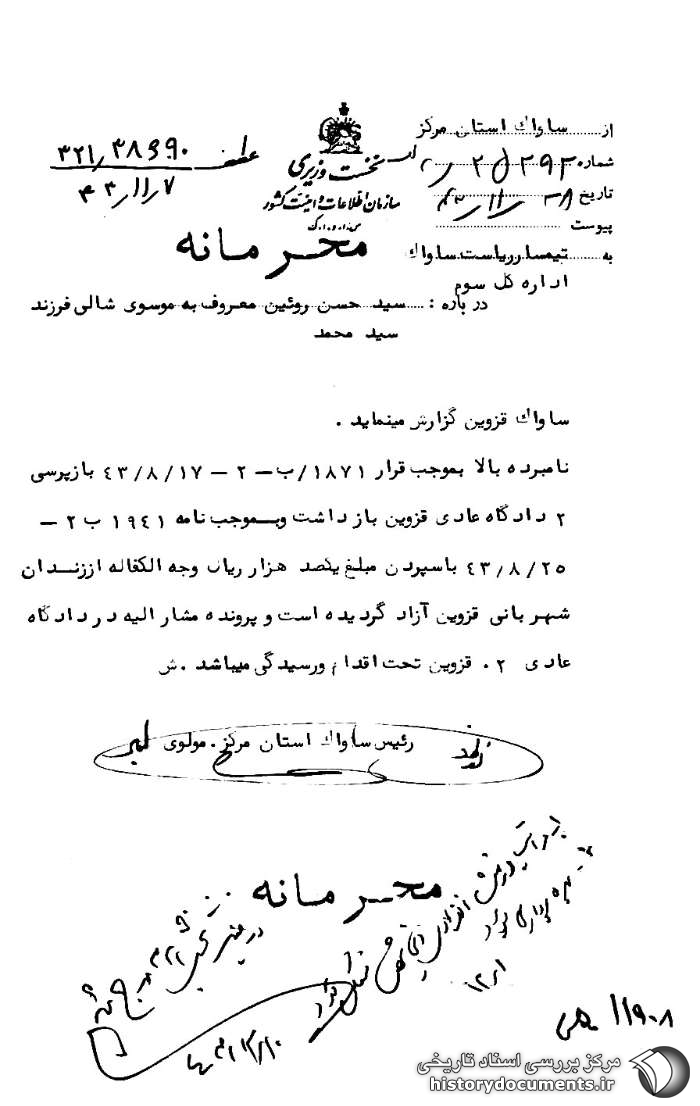 از ساواك استان مرکز
شماره ۲۵۲۹۲
تاریخ ۴۳/۱۱/۲۸
پیوست
عطف ۳۲۱/۳۸۶۹۰
۴۳/۱۱/۷
نخست وزیری
سازمان اطلاعات و امنیت کشور
محرمانه
به تیمسار ریاست ساواك
اداره کل سوم
درباره : سید حسن روئین معروف به موسوی شالی فرزند
سید محمد
ساواك قزوین گزارش مینماید .
نامبرده بالا بموجب قرار ۱۸۷۱/ب – ۲ – ۴۳/۸/۱۷ بازپرسی
۲ دادگاه عادی قزوین بازداشت وبموجب نامه ۱۹۴۱ ب ۲ –
۴۳/۸/۲۵ باسپردن مبلغ یکصد هزار ریال وجه الکفاله اززندان
شهربانی قزوین آزاد گردیده است و پرونده مشارالیه دردادگاه
عادی ۲ . قزوین تحت اقدام ورسیدگی میباشد .ش
رئیس ساواك استان مرکز . مولوی
محرمانه
۱۲/۱
۱۱۹۰۸
مرکز بررسی اسناد تاریخی
historydocuments.ir